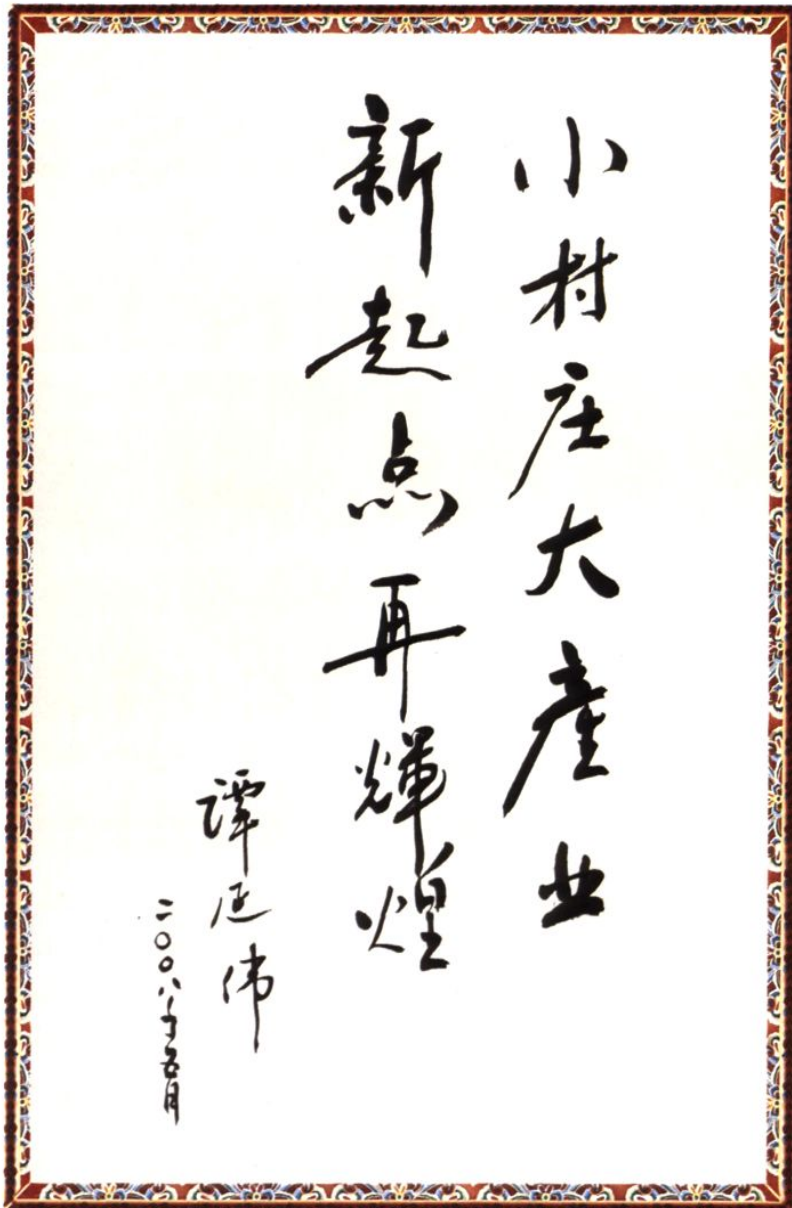 小村庄大產业
新起点再輝煌
譚延伟
二〇〇八年五月